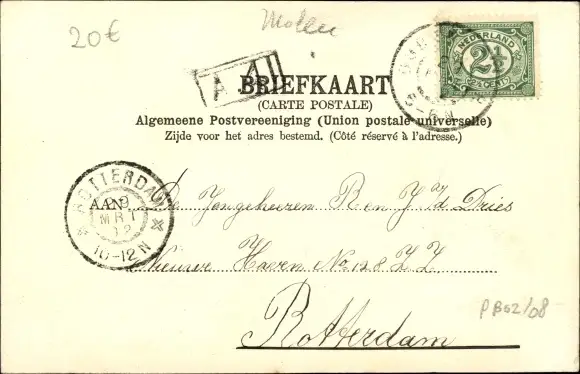 20€
Molen
A 41
BRIEFKAART
(CARTE POSTALE)
Algemeene Postvereeniging (Union postale universelle)
Zijde voor het adres bestemd. (Côté réservé à l'adresse.)
NEDERLAND
2½
5-6N
ROTTERDAM
9
MRT
12
10-12N
AAN
De Jongeheeren R en J v/d Dries
Nieuwe Haven No 128 ZZ
Rotterdam